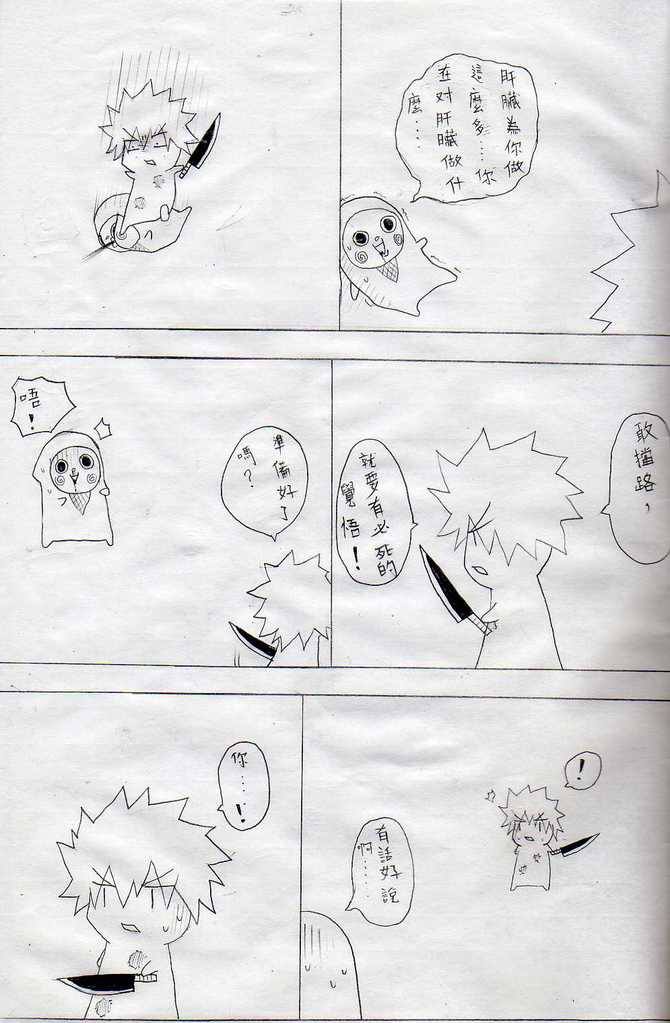 肝臟為你做
這麼多…你
在对肝臟做什
麼…
敢擋路，
就要有必死的
覺悟！
準備好了
嗎？
唔！
！
有話好說
啊……
你…！